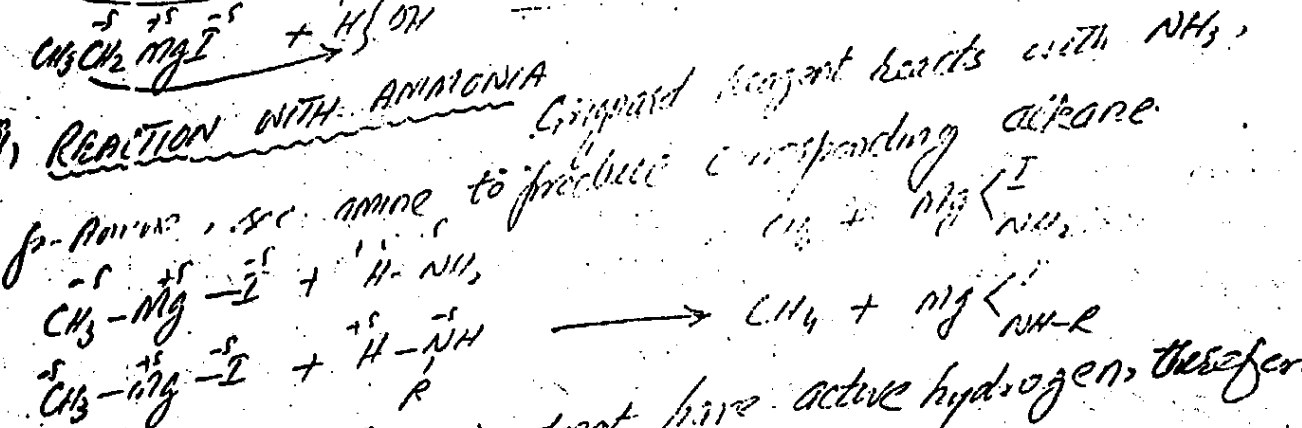 CH₃CH₂ MgI + H OH
REACTION WITH AMMONIA Grignard reagent reacts with NH₃,
p-Amine, sec. amine to produce corresponding alkane.
CH₃-Mg-I + H-NH₂ CH₄ + Mg<I NH₂
CH₃-Mg-I + H-NH R → CH₄ + Mg<I NH-R
not have active hydrogen, therefor